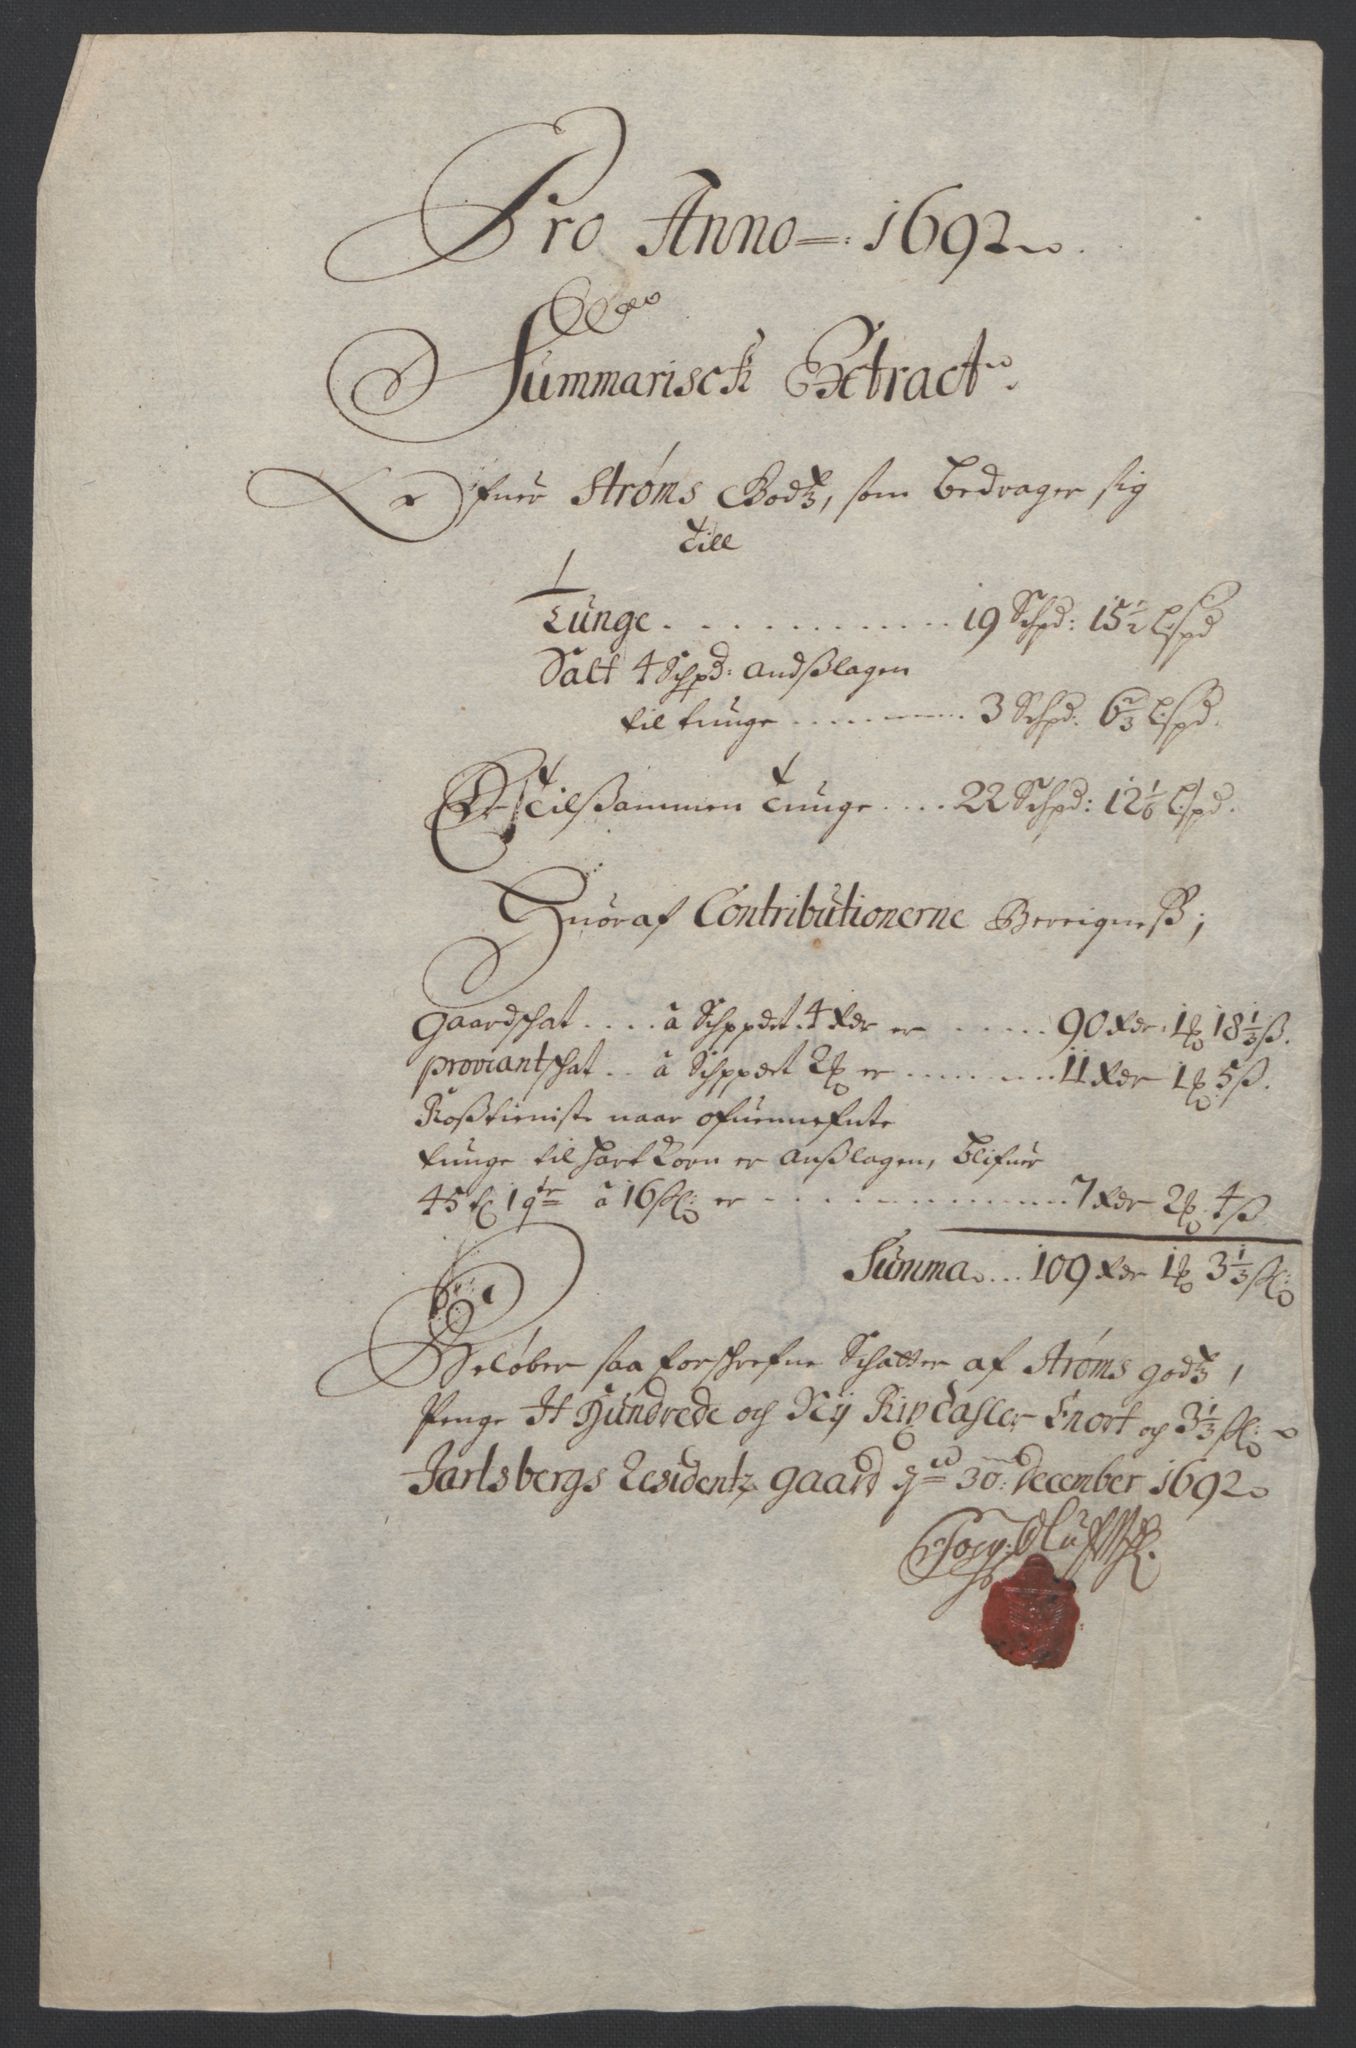 Pro Anno 1692
Summarisch Extract
Ofver Strøms Godtz, som bedrager sig
till
Tunge . . . . . . . . . . . 19 Schpd: 15½ Lispd
Salt 4 Schpd: andslagen
til tunge . . . . . . . . 3 Schpd: 6⅔ Lispd.
Er Tilsammen Tunge . . . . 22 Schpd: 12⅙ Lispd.
Hvoraf Contributionerne Bereignes;
Gaardschat . . . . â Schppdet 4 Rdr er . . . . . . 90 Rdr. 1 ℔ 18⅓ ß.
Proviantschat . . â Schppdet 2 ℔ er . . . . . . . 11 Rdr 1 ℔ 5 ß.
Rosstieniste naar ofvennefnte
tunge til hart Korn er anslagen, blifver
45 tr 1 qtr â 16 sk: er . . . . . . . . . . . . 7 Rdr 2 ℔ 4 ß
Summa . . . 109 Rdr 1 ℔ 3⅓ sk:
Beløber saa forschrefne Schatter af Strøms godtz,
Penge It Hundrede och Nij Rixdaller Enort och 3⅓ sk:
Jarlsbergs Residentz gaard d 30: December 1692